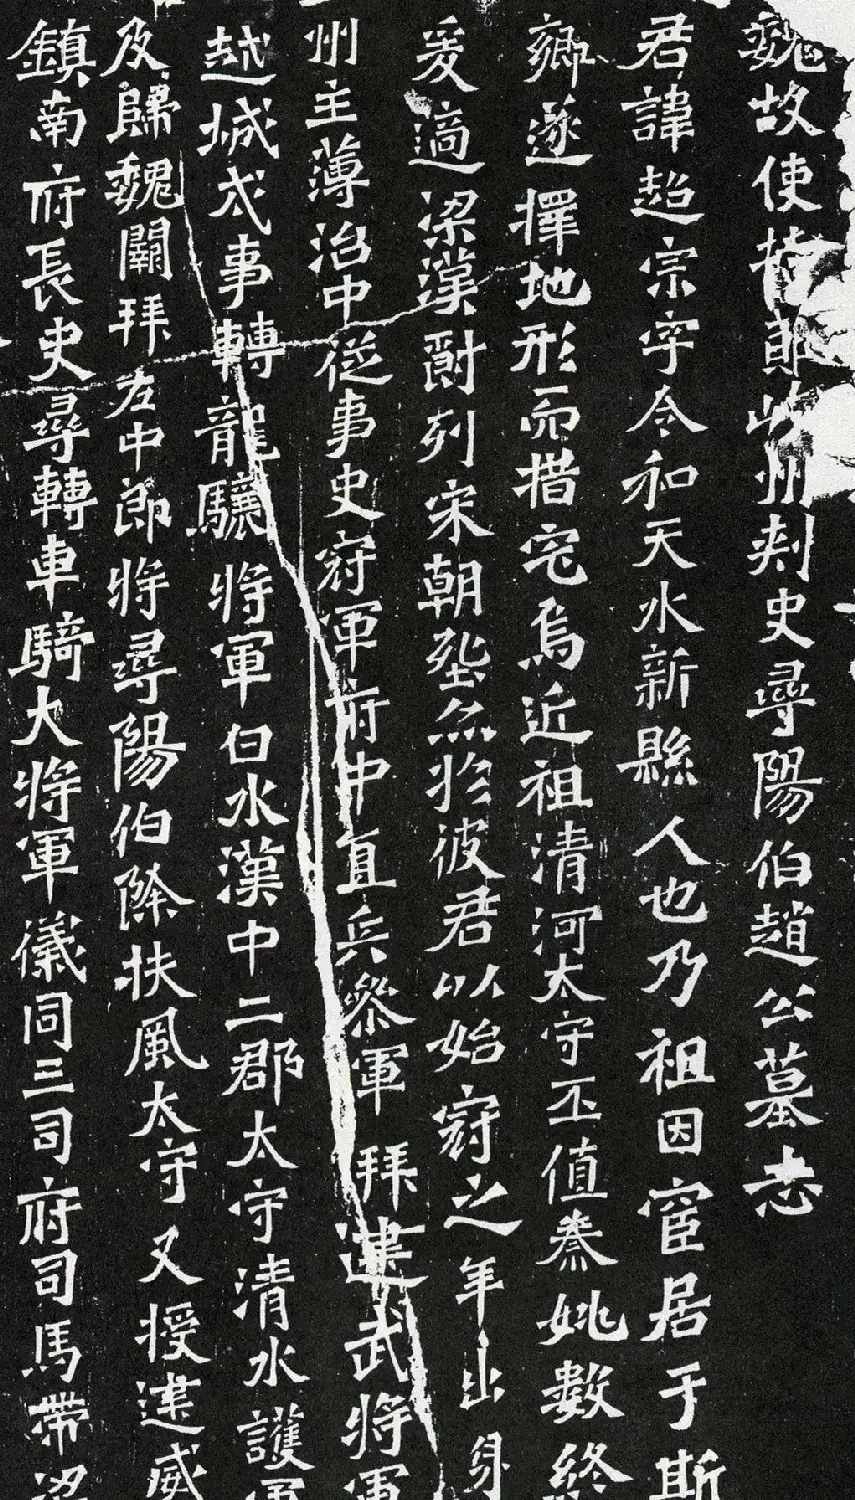 魏故使持節岐州刺史尋陽伯趙公墓志
君諱超宗字令和天水新縣人也乃祖因宦居于斯
鄉遂擇地形而措宅焉近祖清河太守丕值秦姚數終
爰適梁漢爵列宋朝墍然於彼君以始冠之年出身
州主薄治中從事史冠軍府中直兵參軍拜建武將軍
越城戍事轉龍驤將軍白水漢中二郡太守清水護軍
及歸魏闕拜左中郎將尋陽伯除扶風太守又授建威
鎮南府長史尋轉車騎大將軍儀同三司府司馬帶梁